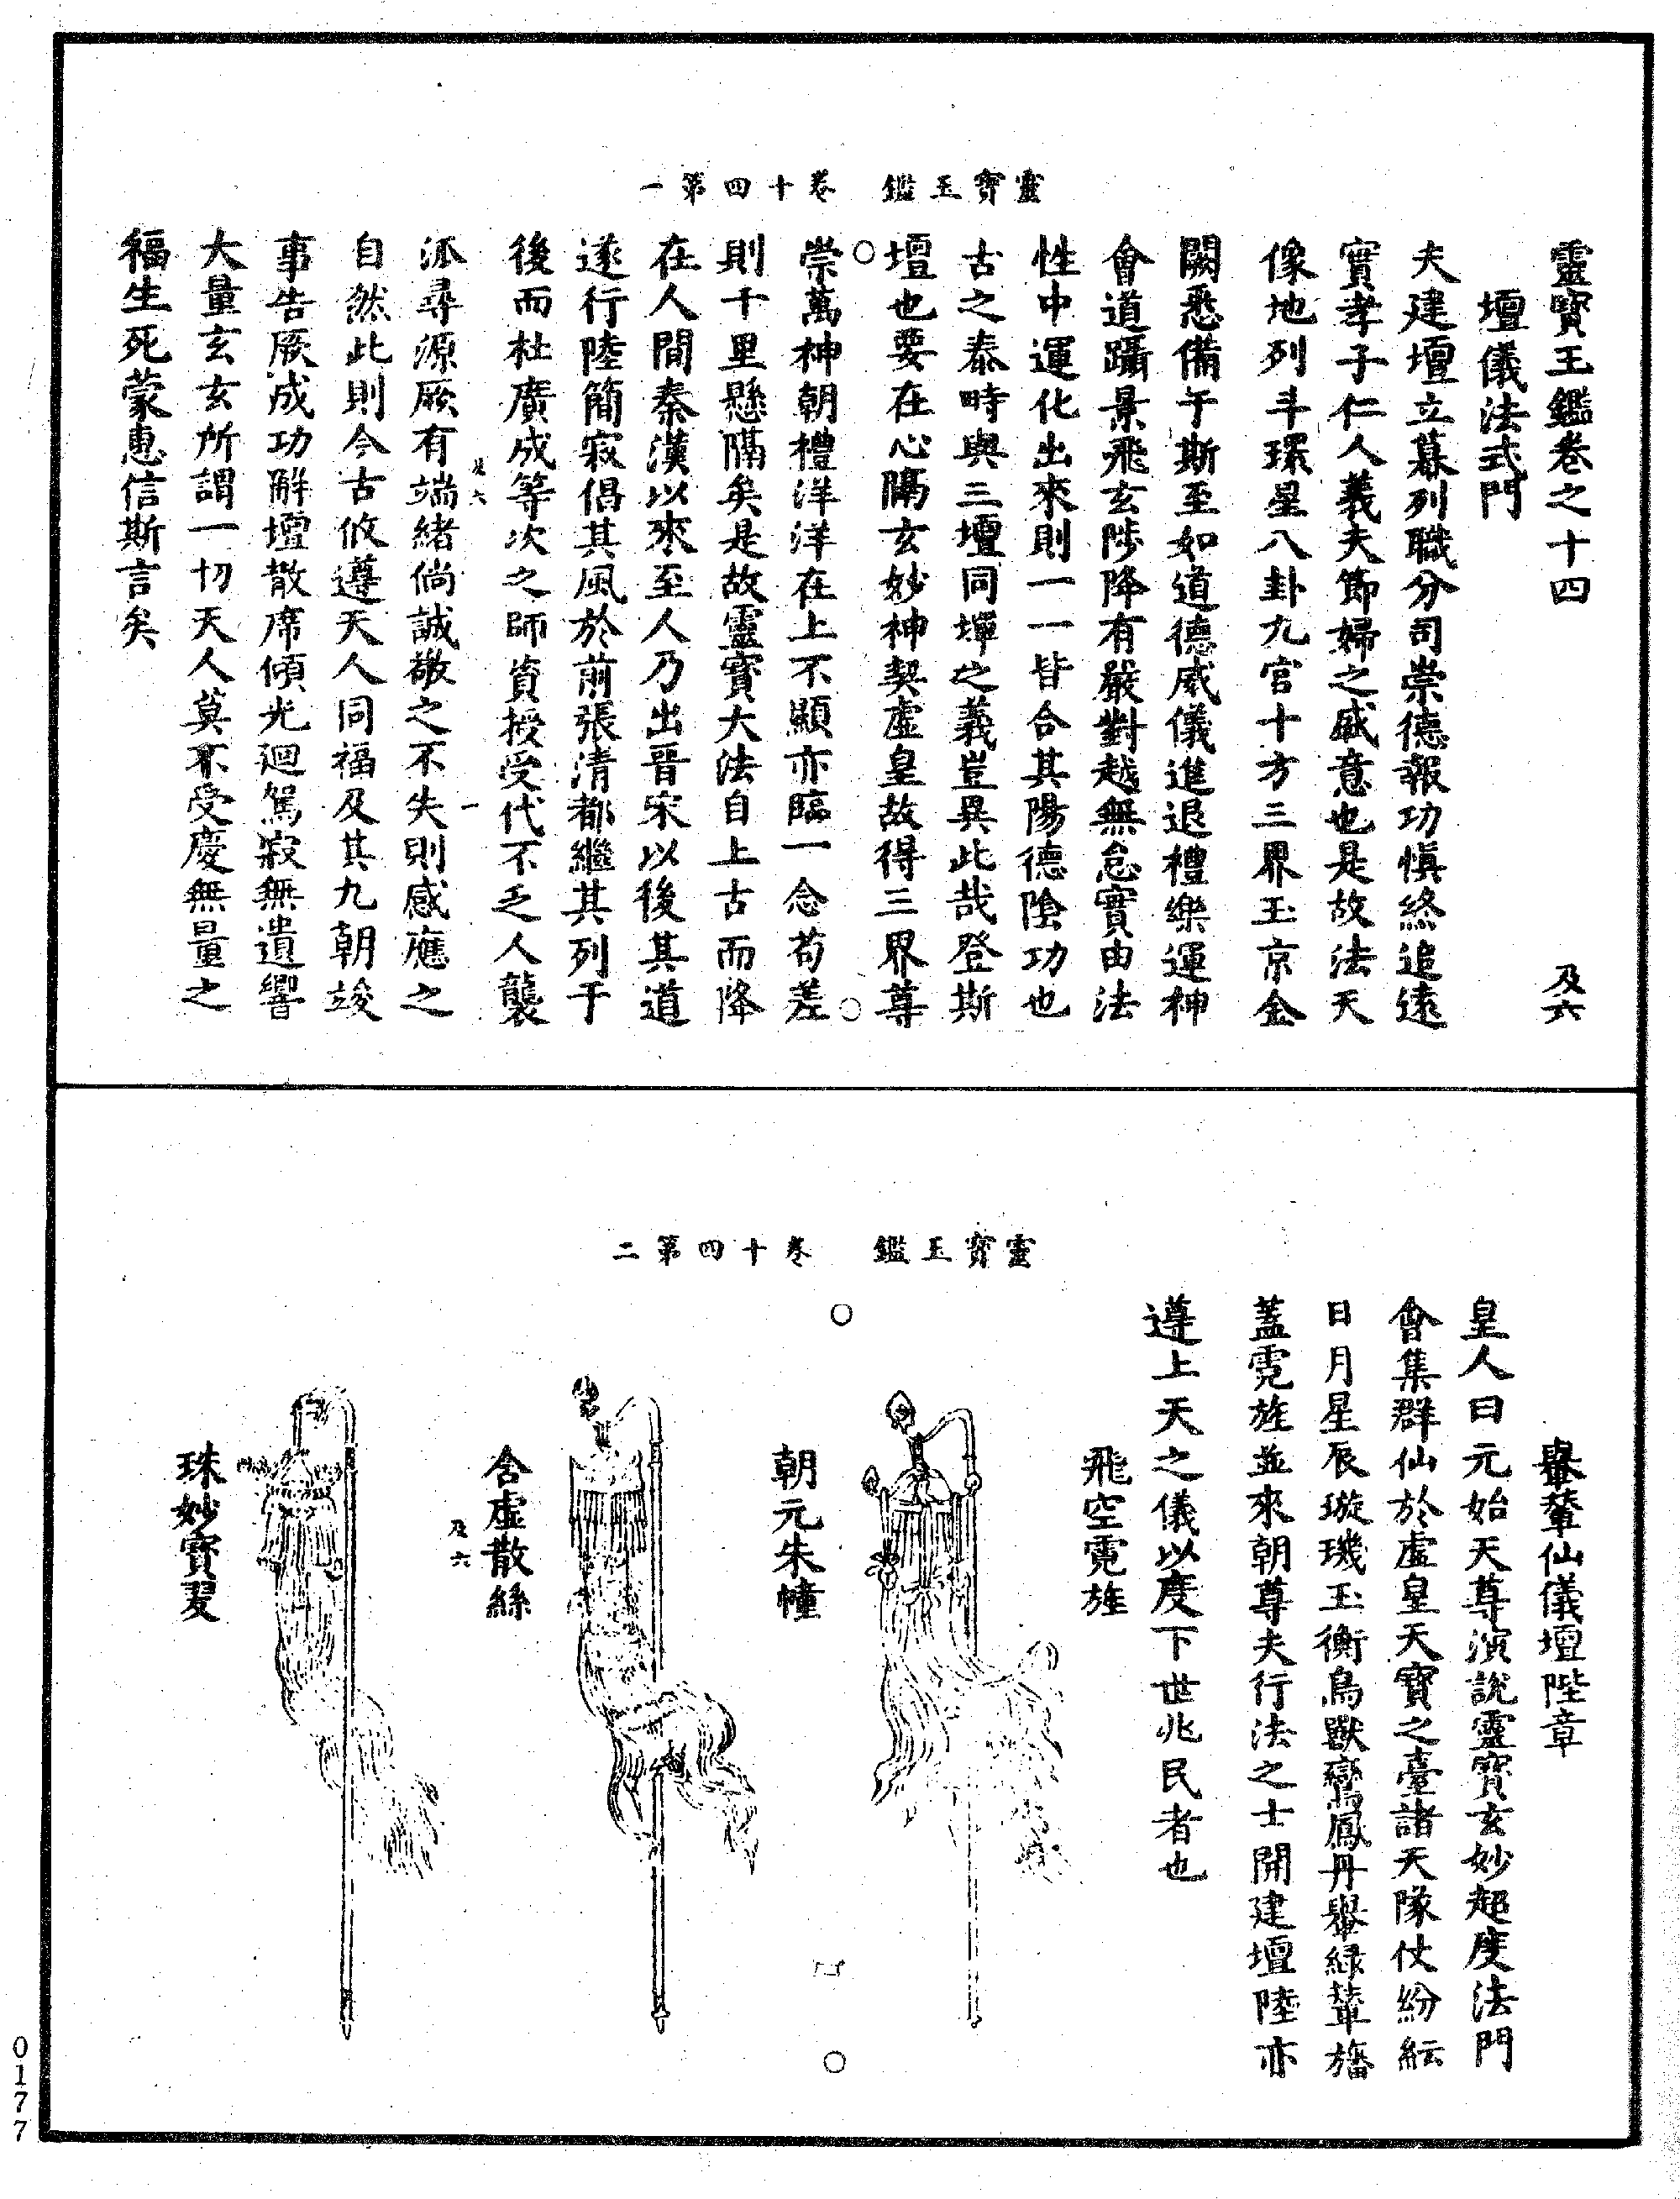 靈寶玉鑑　卷十四第一
靈寶玉鑑卷之十四　及六
壇儀法式門
夫建壇立幕列職分司崇德報功慎終追遠
實孝子仁人義夫節婦之感意也是故法天
像地列斗環星八卦九宮十方三界玉京金
闕悉備于斯至如道德威儀進退禮樂運神
會道躡景飛玄陟降有嚴對越無怠實由法
性中運化出來則一一皆合其陽德陰功也
古之泰畤與三壇同墠之義豈異此哉登斯
壇也要在心隔玄妙神契虛皇故得三界尊
崇萬神朝禮洋洋在上不顯亦臨一念苟差
則千里懸隔矣是故靈寶大法自上古而降
在人間秦漢以來至人乃出晉宋以後其道
遂行陸簡寂倡其風於前張清都繼其列于
後而杜廣成等次之師資授受代不乏人襲
派尋源厥有端緒倘誠敬之不失則感應之
自然此則今古攸遵天人同福及其九朝竣
事告厥成功解壇散席傾光迴駕寂無遺響
大量玄玄所謂一切天人莫不受慶無量之
福生死蒙惠信斯言矣
及六
一
靈寶玉鑑　卷十四第二
轝輦仙儀壇陛章
皇人曰元始天尊演說靈寶玄妙超度法門
會集群仙於虛皇天寶之臺諸天隊仗紛紜
日月星辰璇璣玉衡鳥獸鸞鳳丹轝綠輦旛
蓋霓旌並來朝尊夫行法之士開建壇陸亦
遵上天之儀以度下世兆民者也
飛空霓旌
朝元朱幢
含虛散絲
及六
珠妙寶翣
0177